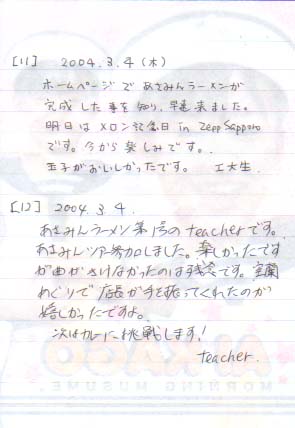 [11] 2004.3.4(木)
ホームページで あさみんラーメンが
完成した事を知り、早速来ました。
明日は メロン記念日 in Zepp Sapporo
です。今から楽しみです。
玉子がおいしかったです。 工大生
[12] 2004.3.4.
あさみんラーメン第1号のteacherです。
あさみんツアー参加しました。楽しかったです
が曲がきけなかったのは残念です。室蘭
めぐりで店長が手を振ってくれたのが
嬉しかったですよ。
次はカレーに挑戦します!
teacher.
AI KAGO
MORNING MUSUME.